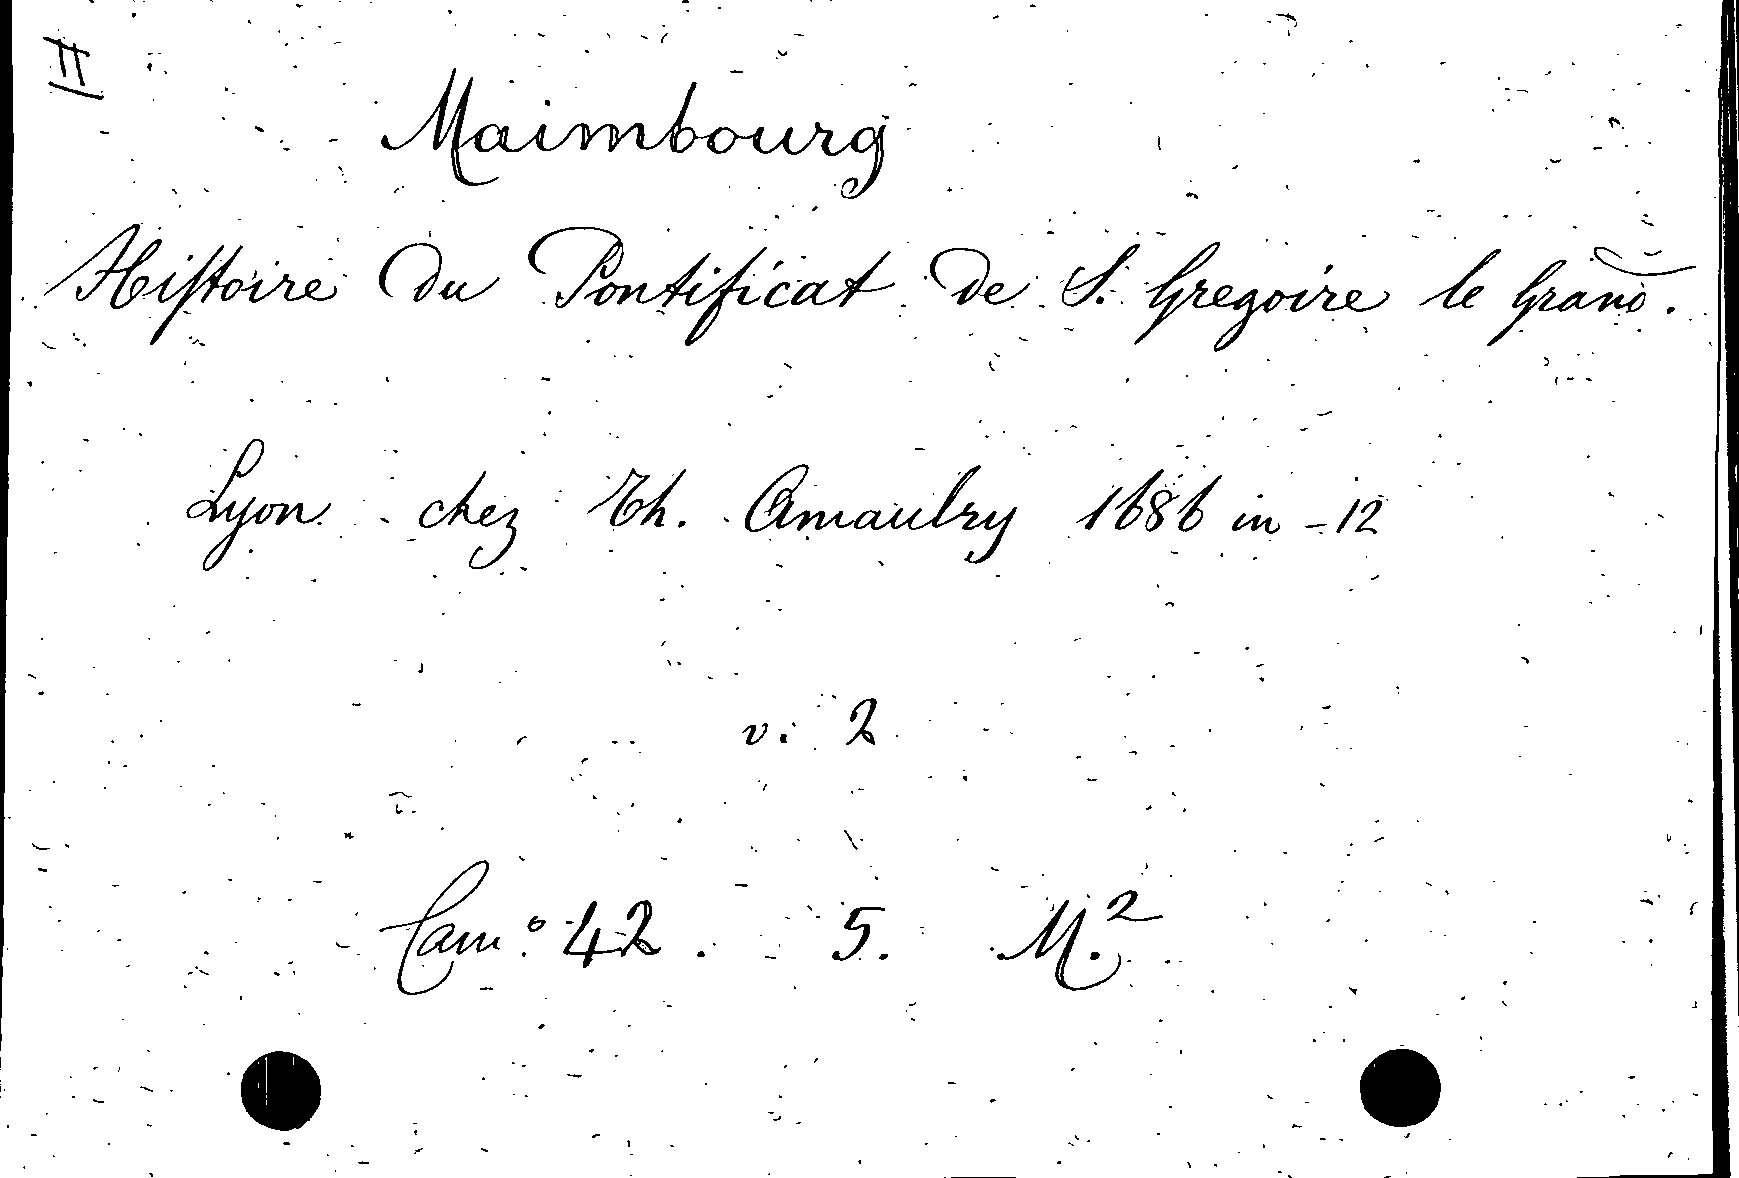 II
Maimbourg
Histoire du Pontificat de S. Gregoire le Grand.
Lyon chez Th. Amaulry 1686 in -12
v. 2
Cam.° 42. 5. M.²